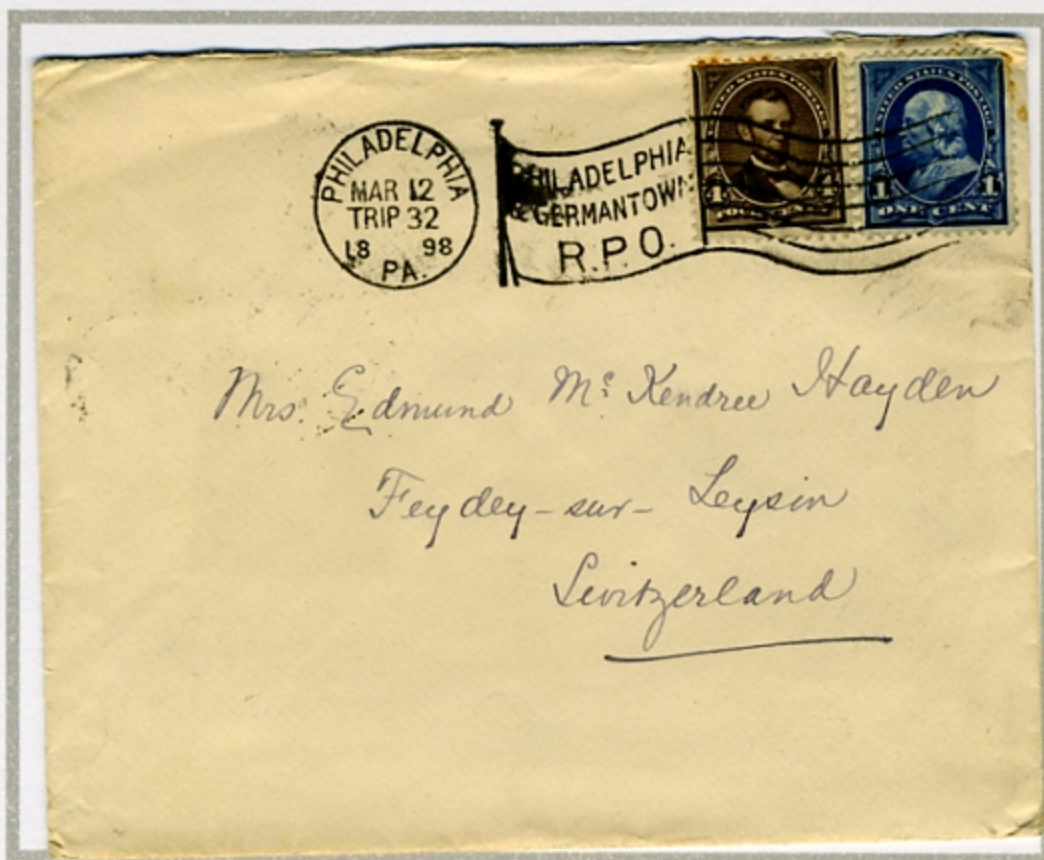 PHILADELPHIA
MAR 12
TRIP 32
18 98
PA.
PHILADELPHIA
& GERMANTOWN
R.P.O.
UNITED STATES POSTAGE
4 4
FOUR CENTS
UNITED STATES POSTAGE
1 1
ONE CENT
Mrs. Edmund Mc Kendree Hayden
Feydey-sur-Leysin
Switzerland